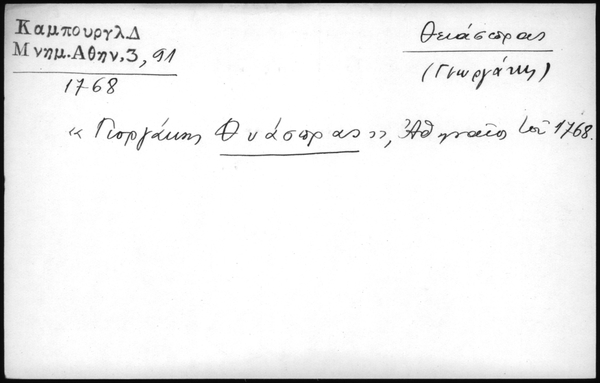 Καμπουργλ.Δ
Μνημ.Αθην.3, 91
1768
Θειάσωρας
(Γιωργάκης)
« Γιοργάκης Θυάσωρας », Ἀθηναῖος τοῦ 1768.